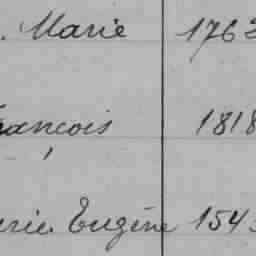 . Marie 1763
rancois 1818
erie Eugène 1543